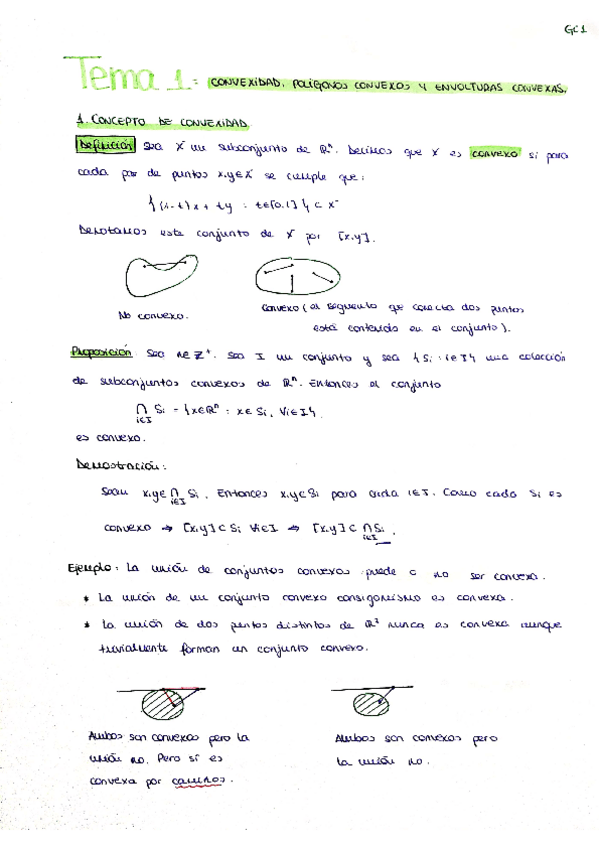 GC1
Tema 1: CONVEXIDAD, POLÍGONOS CONVEXOS Y ENVOLTURAS CONVEXAS.
1. CONCEPTO DE CONVEXIDAD.
Definición Sea X un subconjunto de ℝⁿ. Decimos que X es convexo si para
cada par de puntos x,y∈X se cumple que:
{(1-t)x + ty : t∈[0,1]} ⊂ X
Denotamos este conjunto de X por [x,y].
No convexo.
Convexo (el segmento que conecta dos puntos
está contenido en el conjunto).
Proposición: Sea n∈ℤ⁺. Sea I un conjunto y sea {Si : i∈I} una colección
de subconjuntos convexos de ℝⁿ. Entonces el conjunto
⋂i∈I Si = {x∈ℝⁿ : x∈Si, ∀i∈I}.
es convexo.
Demostración:
Sean x,y∈⋂i∈I Si. Entonces x,y∈Si para cada i∈I. Como cada Si es
convexo ⇒ [x,y]⊂Si ∀i∈I ⇒ [x,y]⊂⋂i∈I Si.
Ejemplo: La unión de conjuntos convexos puede o no ser convexa.
* La unión de un conjunto convexo consigo mismo es convexa.
* La unión de dos puntos distintos de ℝ² nunca es convexa aunque
trivialmente forman un conjunto convexo.
Ambos son convexos pero la
unión no. Pero sí es
convexa por caminos.
Ambos son convexos pero
la unión no.